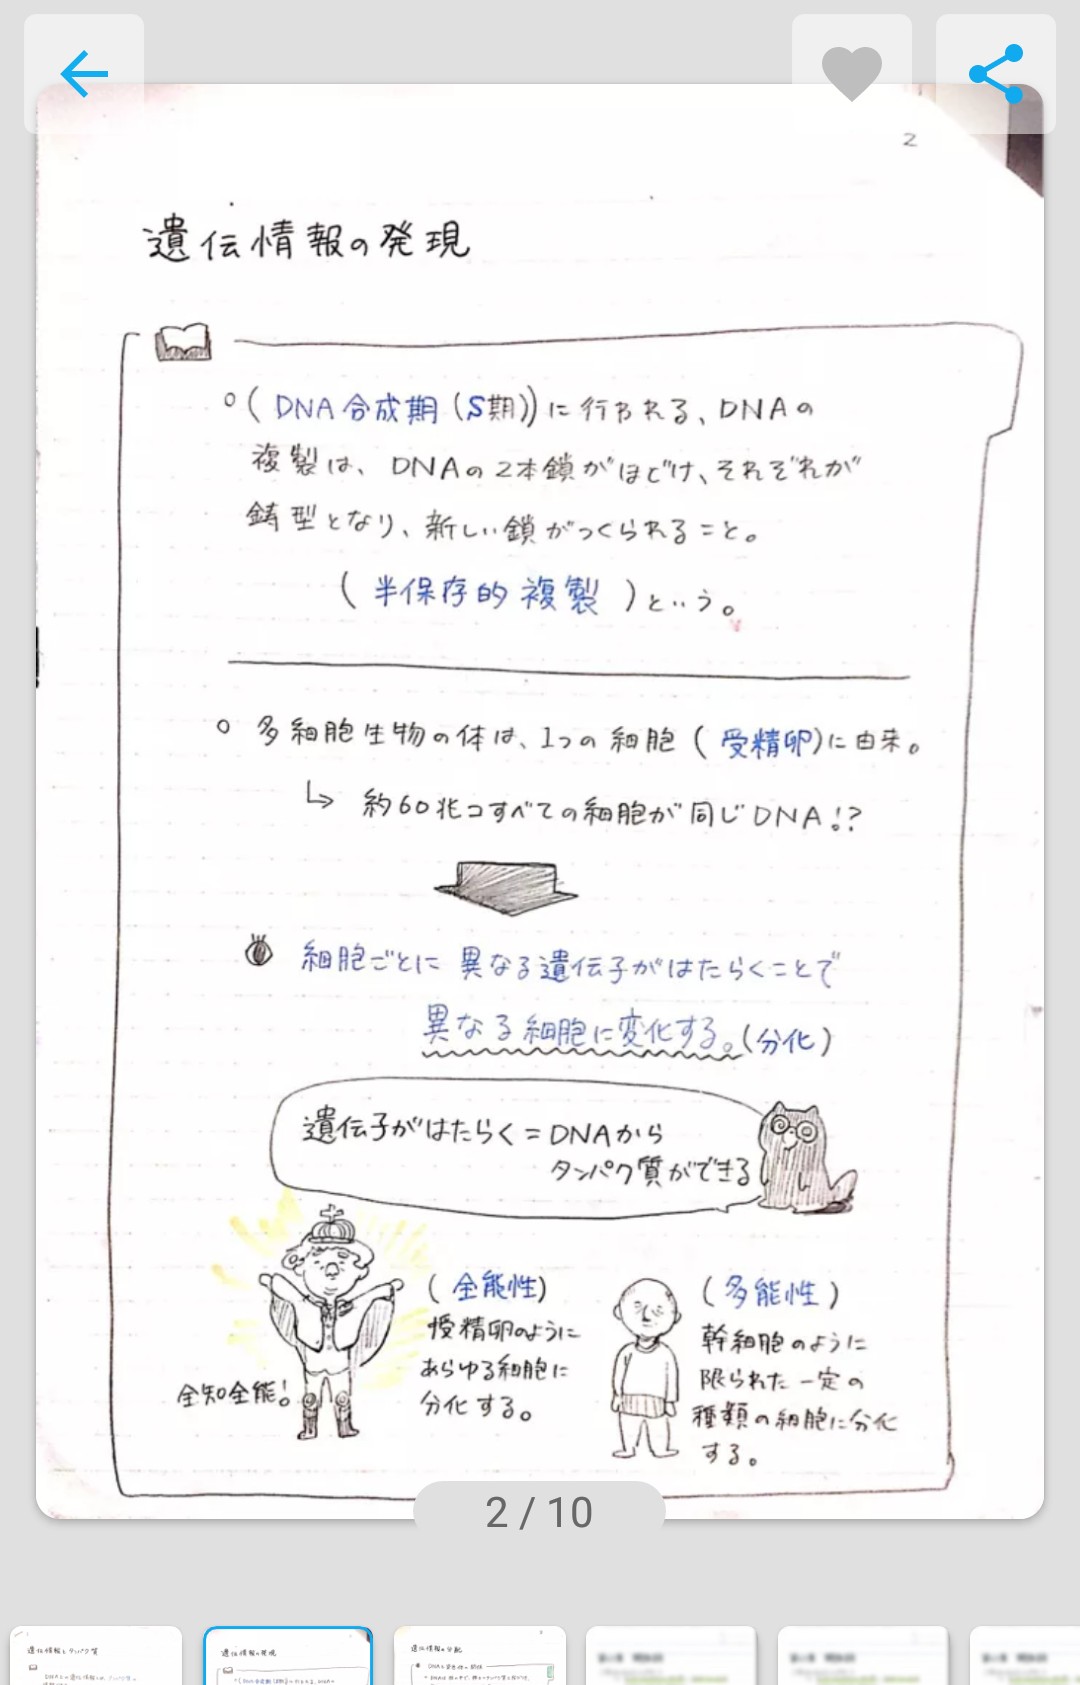 2
遺伝情報の発現
○(DNA合成期(S期))に行われる、DNAの
複製は、DNAの2本鎖がほどけ、それぞれが
鋳型となり、新しい鎖がつくられること。
(半保存的複製)という。
○多細胞生物の体は、1つの細胞(受精卵)に由来。
↳ 約60兆コすべての細胞が同じDNA!?
細胞ごとに異なる遺伝子がはたらくことで
異なる細胞に変化する。(分化)
遺伝子がはたらく=DNAから
タンパク質ができる
全知全能!
(全能性)
受精卵のように
あらゆる細胞に
分化する。
(多能性)
幹細胞のように
限られた一定の
種類の細胞に分化
する。
2 / 10
遺伝情報とタンパク質
遺伝情報の発現
遺伝情報の分配